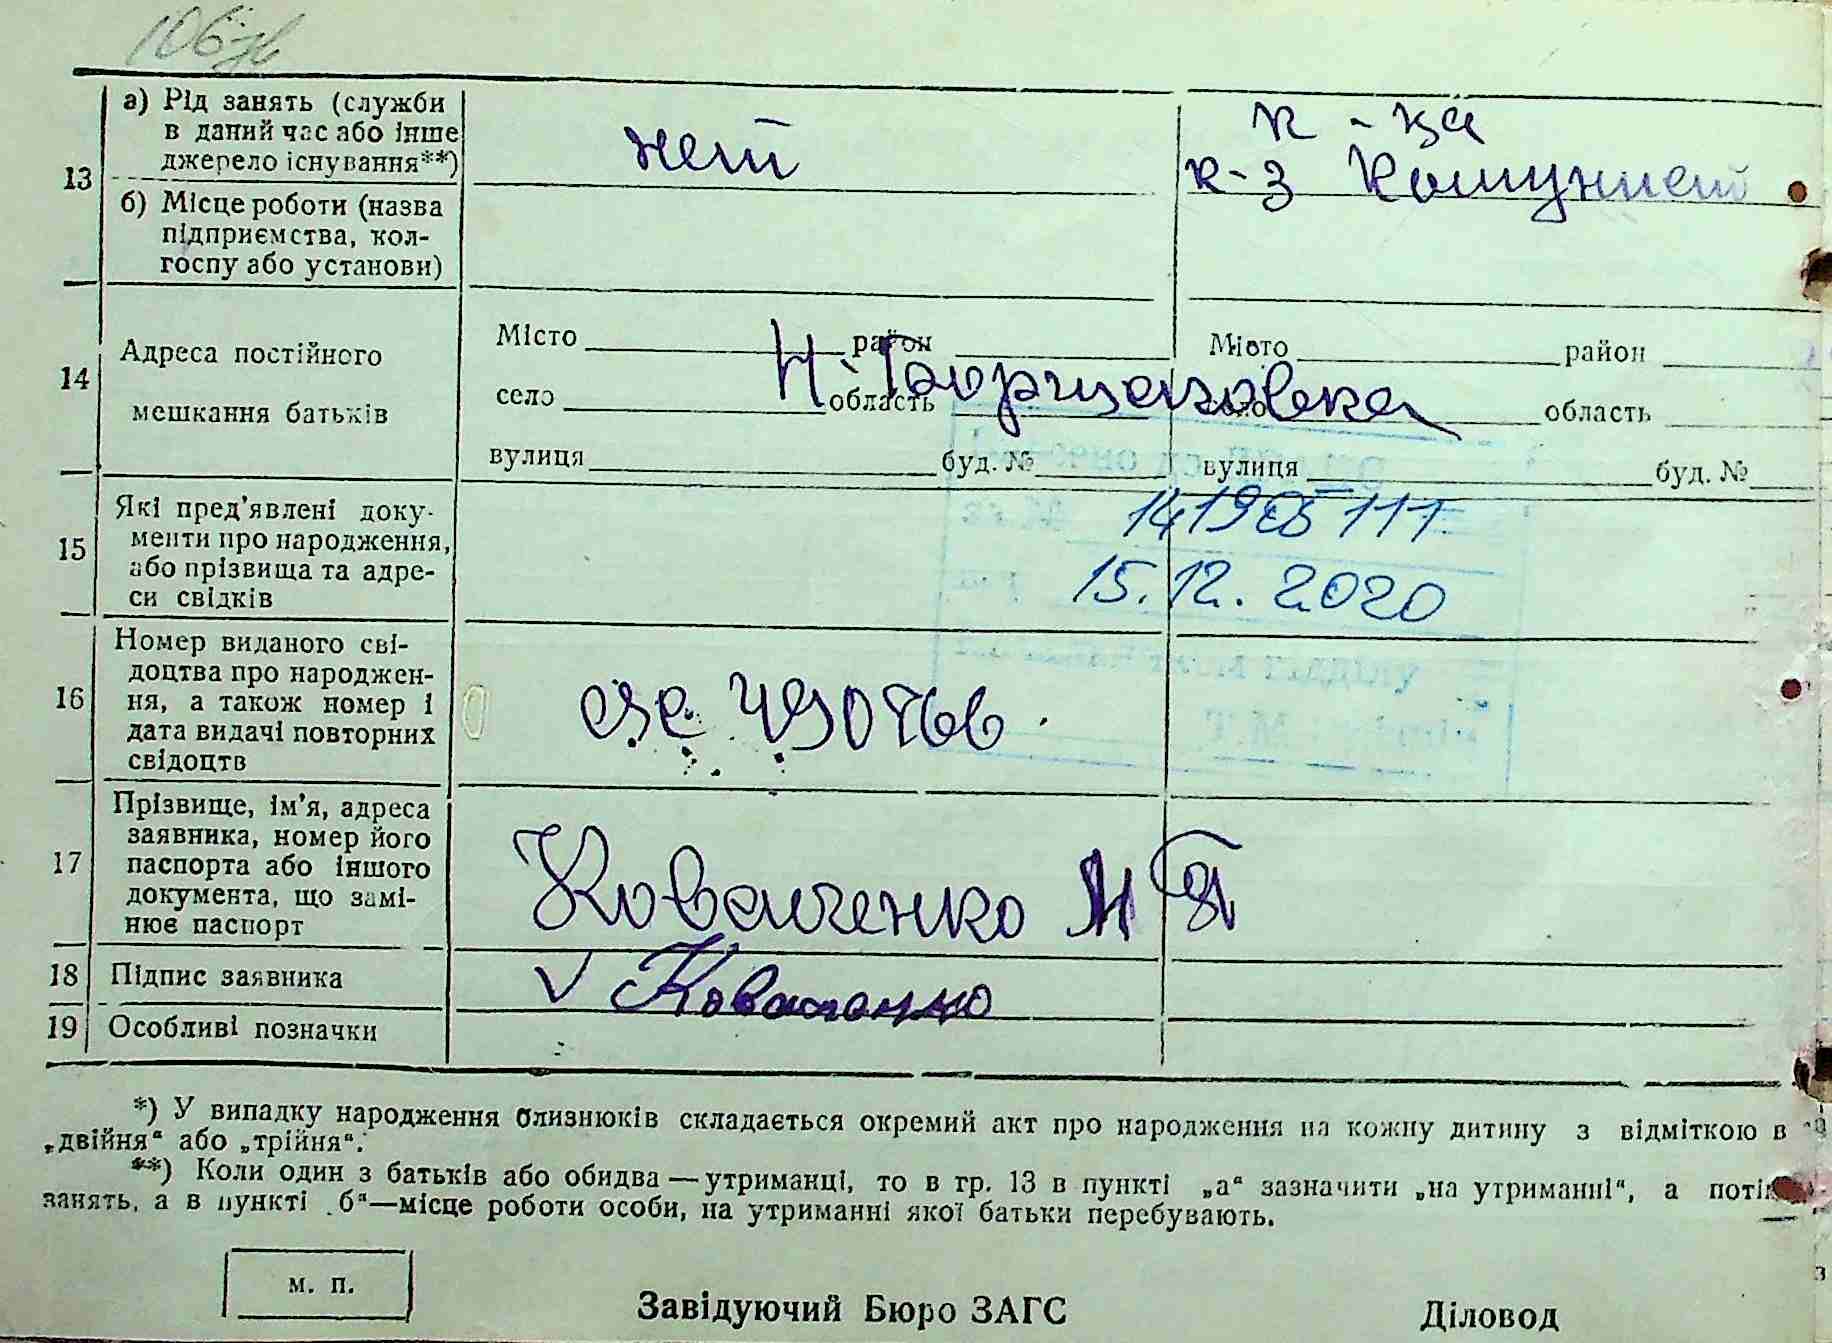 13
а) Рід занять (служби
в даний час або інше
джерело існування**)
нет
к-ца
к-з Комунист
б) Місце роботи (назва
підприємства, кол-
госпу або установи)
14
Адреса постійного
мешкання батьків
Місто район Місто район
село область село область
вулиця буд. № вулиця буд. №
15
Які пред'явлені доку-
менти про народження,
або прізвища та адре-
си свідків
15.12.2020
16
Номер виданого сві-
доцтва про народжен-
ня, а також номер і
дата видачі повторних
свідоцтв
17
Прізвище, ім'я, адреса
заявника, номер його
паспорта або іншого
документа, що замі-
нює паспорт
Коваленко
18 Підпис заявника
19 Особливі позначки
*) У випадку народження близнюків складається окремий акт про народження на кожну дитину з відміткою в
„двійня“ або „трійня“.
**) Коли один з батьків або обидва — утриманці, то в гр. 13 в пункті „а“ зазначити „на утриманні“, а
занять, а в пункті „б“—місце роботи особи, на утриманні якої батьки перебувають.
м. п.
Завідуючий Бюро ЗАГС Діловод